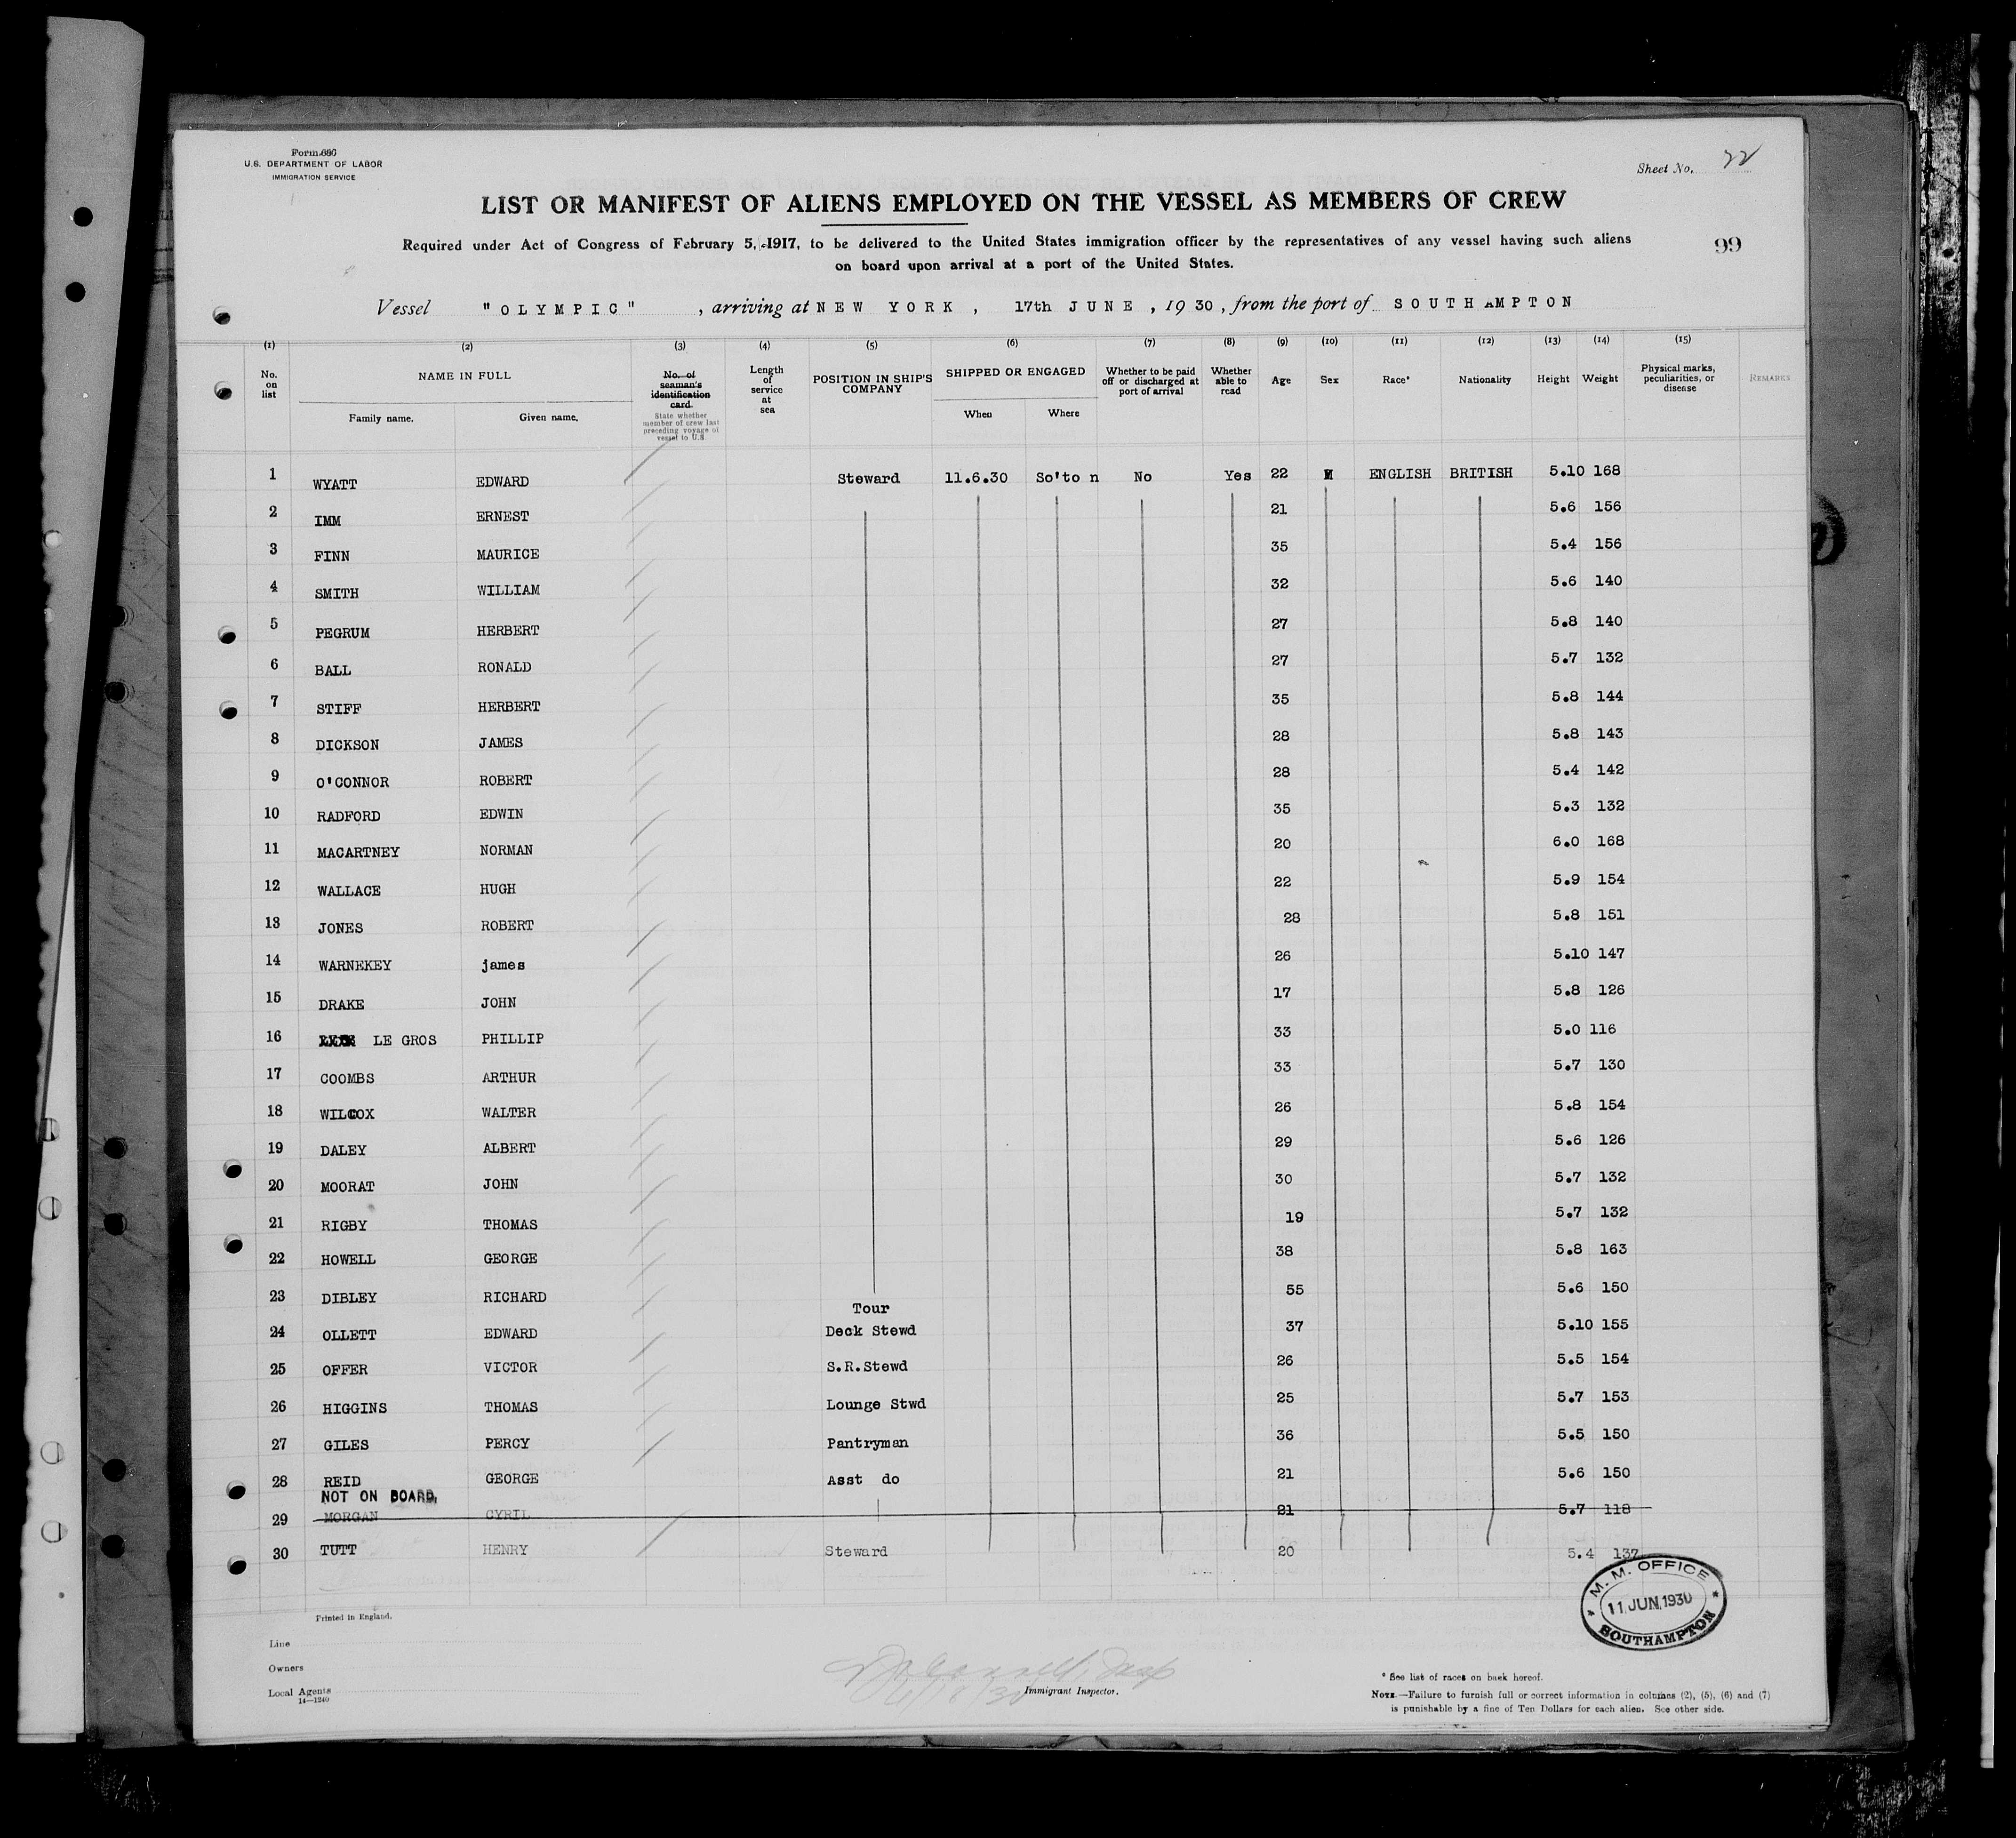 Form 686
U.S. DEPARTMENT OF LABOR
IMMIGRATION SERVICE
Sheet No. 22
LIST OR MANIFEST OF ALIENS EMPLOYED ON THE VESSEL AS MEMBERS OF CREW
Required under Act of Congress of February 5, 1917, to be delivered to the United States immigration officer by the representatives of any vessel having such aliens
on board upon arrival at a port of the United States.
99
Vessel "OLYMPIC" , arriving at NEW YORK , 17th JUNE , 19 30 , from the port of SOUTHAMPTON
(1) (2) (3) (4) (5) (6) (7) (8) (9) (10) (11) (12) (13) (14) (15)
No. on list NAME IN FULL Family name. Given name. No. of seaman's identification card. State whether member of crew last preceding voyage of vessel to U.S. Length of service at sea POSITION IN SHIP'S COMPANY SHIPPED OR ENGAGED When Where Whether to be paid off or discharged at port of arrival Whether able to read Age Sex Race* Nationality Height Weight Physical marks, peculiarities, or disease REMARKS
1 WYATT EDWARD Steward 11.6.30 So'to n No Yes 22 M ENGLISH BRITISH 5.10 168
2 IMM ERNEST 21 5.6 156
3 FINN MAURICE 35 5.4 156
4 SMITH WILLIAM 32 5.6 140
5 PEGRUM HERBERT 27 5.8 140
6 BALL RONALD 27 5.7 132
7 STIFF HERBERT 35 5.8 144
8 DICKSON JAMES 28 5.8 143
9 O'CONNOR ROBERT 28 5.4 142
10 RADFORD EDWIN 35 5.3 132
11 MACARTNEY NORMAN 20 6.0 168
12 WALLACE HUGH 22 5.9 154
13 JONES ROBERT 28 5.8 151
14 WARNEKEY james 26 5.10 147
15 DRAKE JOHN 17 5.8 126
16 LE GROS PHILLIP 33 5.0 116
17 COOMBS ARTHUR 33 5.7 130
18 WILCOX WALTER 26 5.8 154
19 DALEY ALBERT 29 5.6 126
20 MOORAT JOHN 30 5.7 132
21 RIGBY THOMAS 19 5.7 132
22 HOWELL GEORGE 38 5.8 163
23 DIBLEY RICHARD 55 5.6 150
Tour
24 OLLETT EDWARD Deck Stewd 37 5.10 155
25 OFFER VICTOR S.R.Stewd 26 5.5 154
26 HIGGINS THOMAS Lounge Stwd 25 5.7 153
27 GILES PERCY Pantryman 36 5.5 150
28 REID GEORGE Asst do 21 5.6 150
NOT ON BOARD.
29 MORGAN CYRIL 21 5.7 118
30 TUTT HENRY Steward 20 5.4 137
M. M. OFFICE
11 JUN 1930
SOUTHAMPTON
Printed in England.
Line
Owners
Local Agents
14—1240
Immigrant Inspector.
* See list of races on back hereof.
NOTE.—Failure to furnish full or correct information in columns (2), (5), (6) and (7)
is punishable by a fine of Ten Dollars for each alien. See other side.